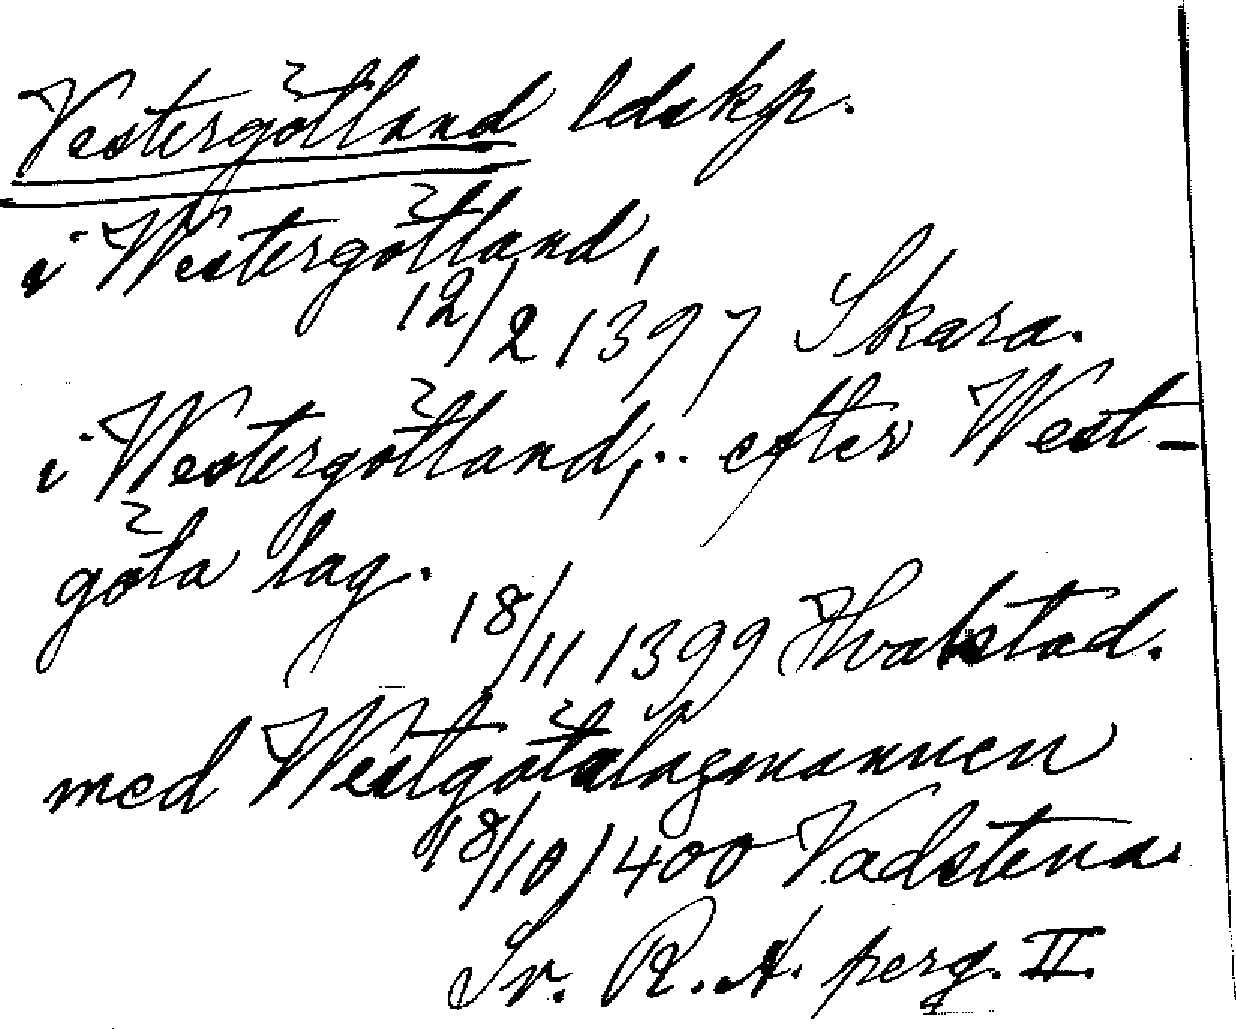 Vestergötland ldskp.
i Westergötland,
12/2 1397 Skara.
i Westergötland,.. efter West-
göta lag.
18/11 1399 Hvalstad.
med Westgötalagmannen
18/10 1400 Vadstena.
Sv. R.A. perg. II.